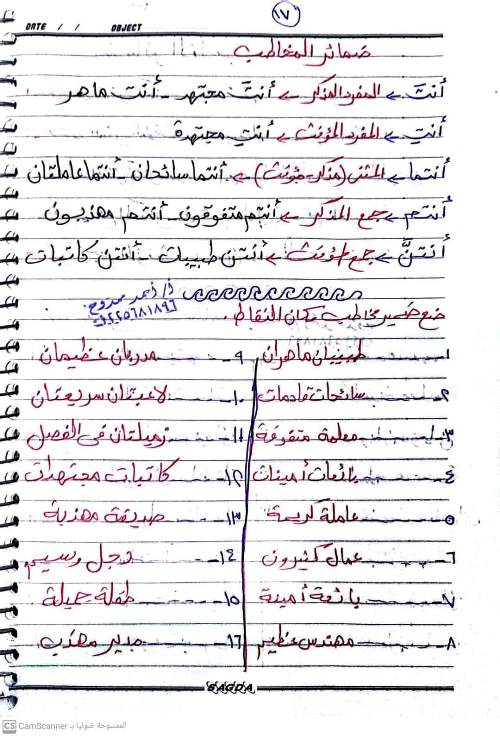 ١٧
DATE / / OBJECT
ضمائر المخاطب
أنتَ ← المفرد المذكر ← أنتَ مجتهد - أنت ماهر
أنتِ ← المفرد المؤنث ← أنتِ مجتهدة
أنتما ← المثنى (مذكر - مؤنث) ← أنتما سائحان - أنتما عاملتان
أنتم ← جمع المذكر ← أنتم متفوقون - أنتم مهذبون
أنتنَّ ← جمع المؤنث ← أنتن طبيبات - أنتن كاتبات
أ/ أحمد ممدوح
ضع ضمير مخاطب مكان النقاط.
١- ........ طبيبان ماهران
٢- ........ سائحات قادمات
٣- ........ معلمة متفوقة
٤- ........ بائعات أمينات
٥- ........ عاملة كريمة
٦- ........ عمال كثيرون
٧- ........ بائعة أمينة
٨- ........ مهندس عظيم
٩- ........ مدربان عظيمان
١٠- ........ لاعبتان سريعتان
١١- ........ زميلتان في الفصل
١٢- ........ كاتبات مجتهدات
١٣- ........ صديقة مهذبة
١٤- ........ رجل وسيم
١٥- ........ طفلة جميلة
١٦- ........ مدير مهذب
SAGDA
CS CamScanner الممسوحة ضوئيا بـ